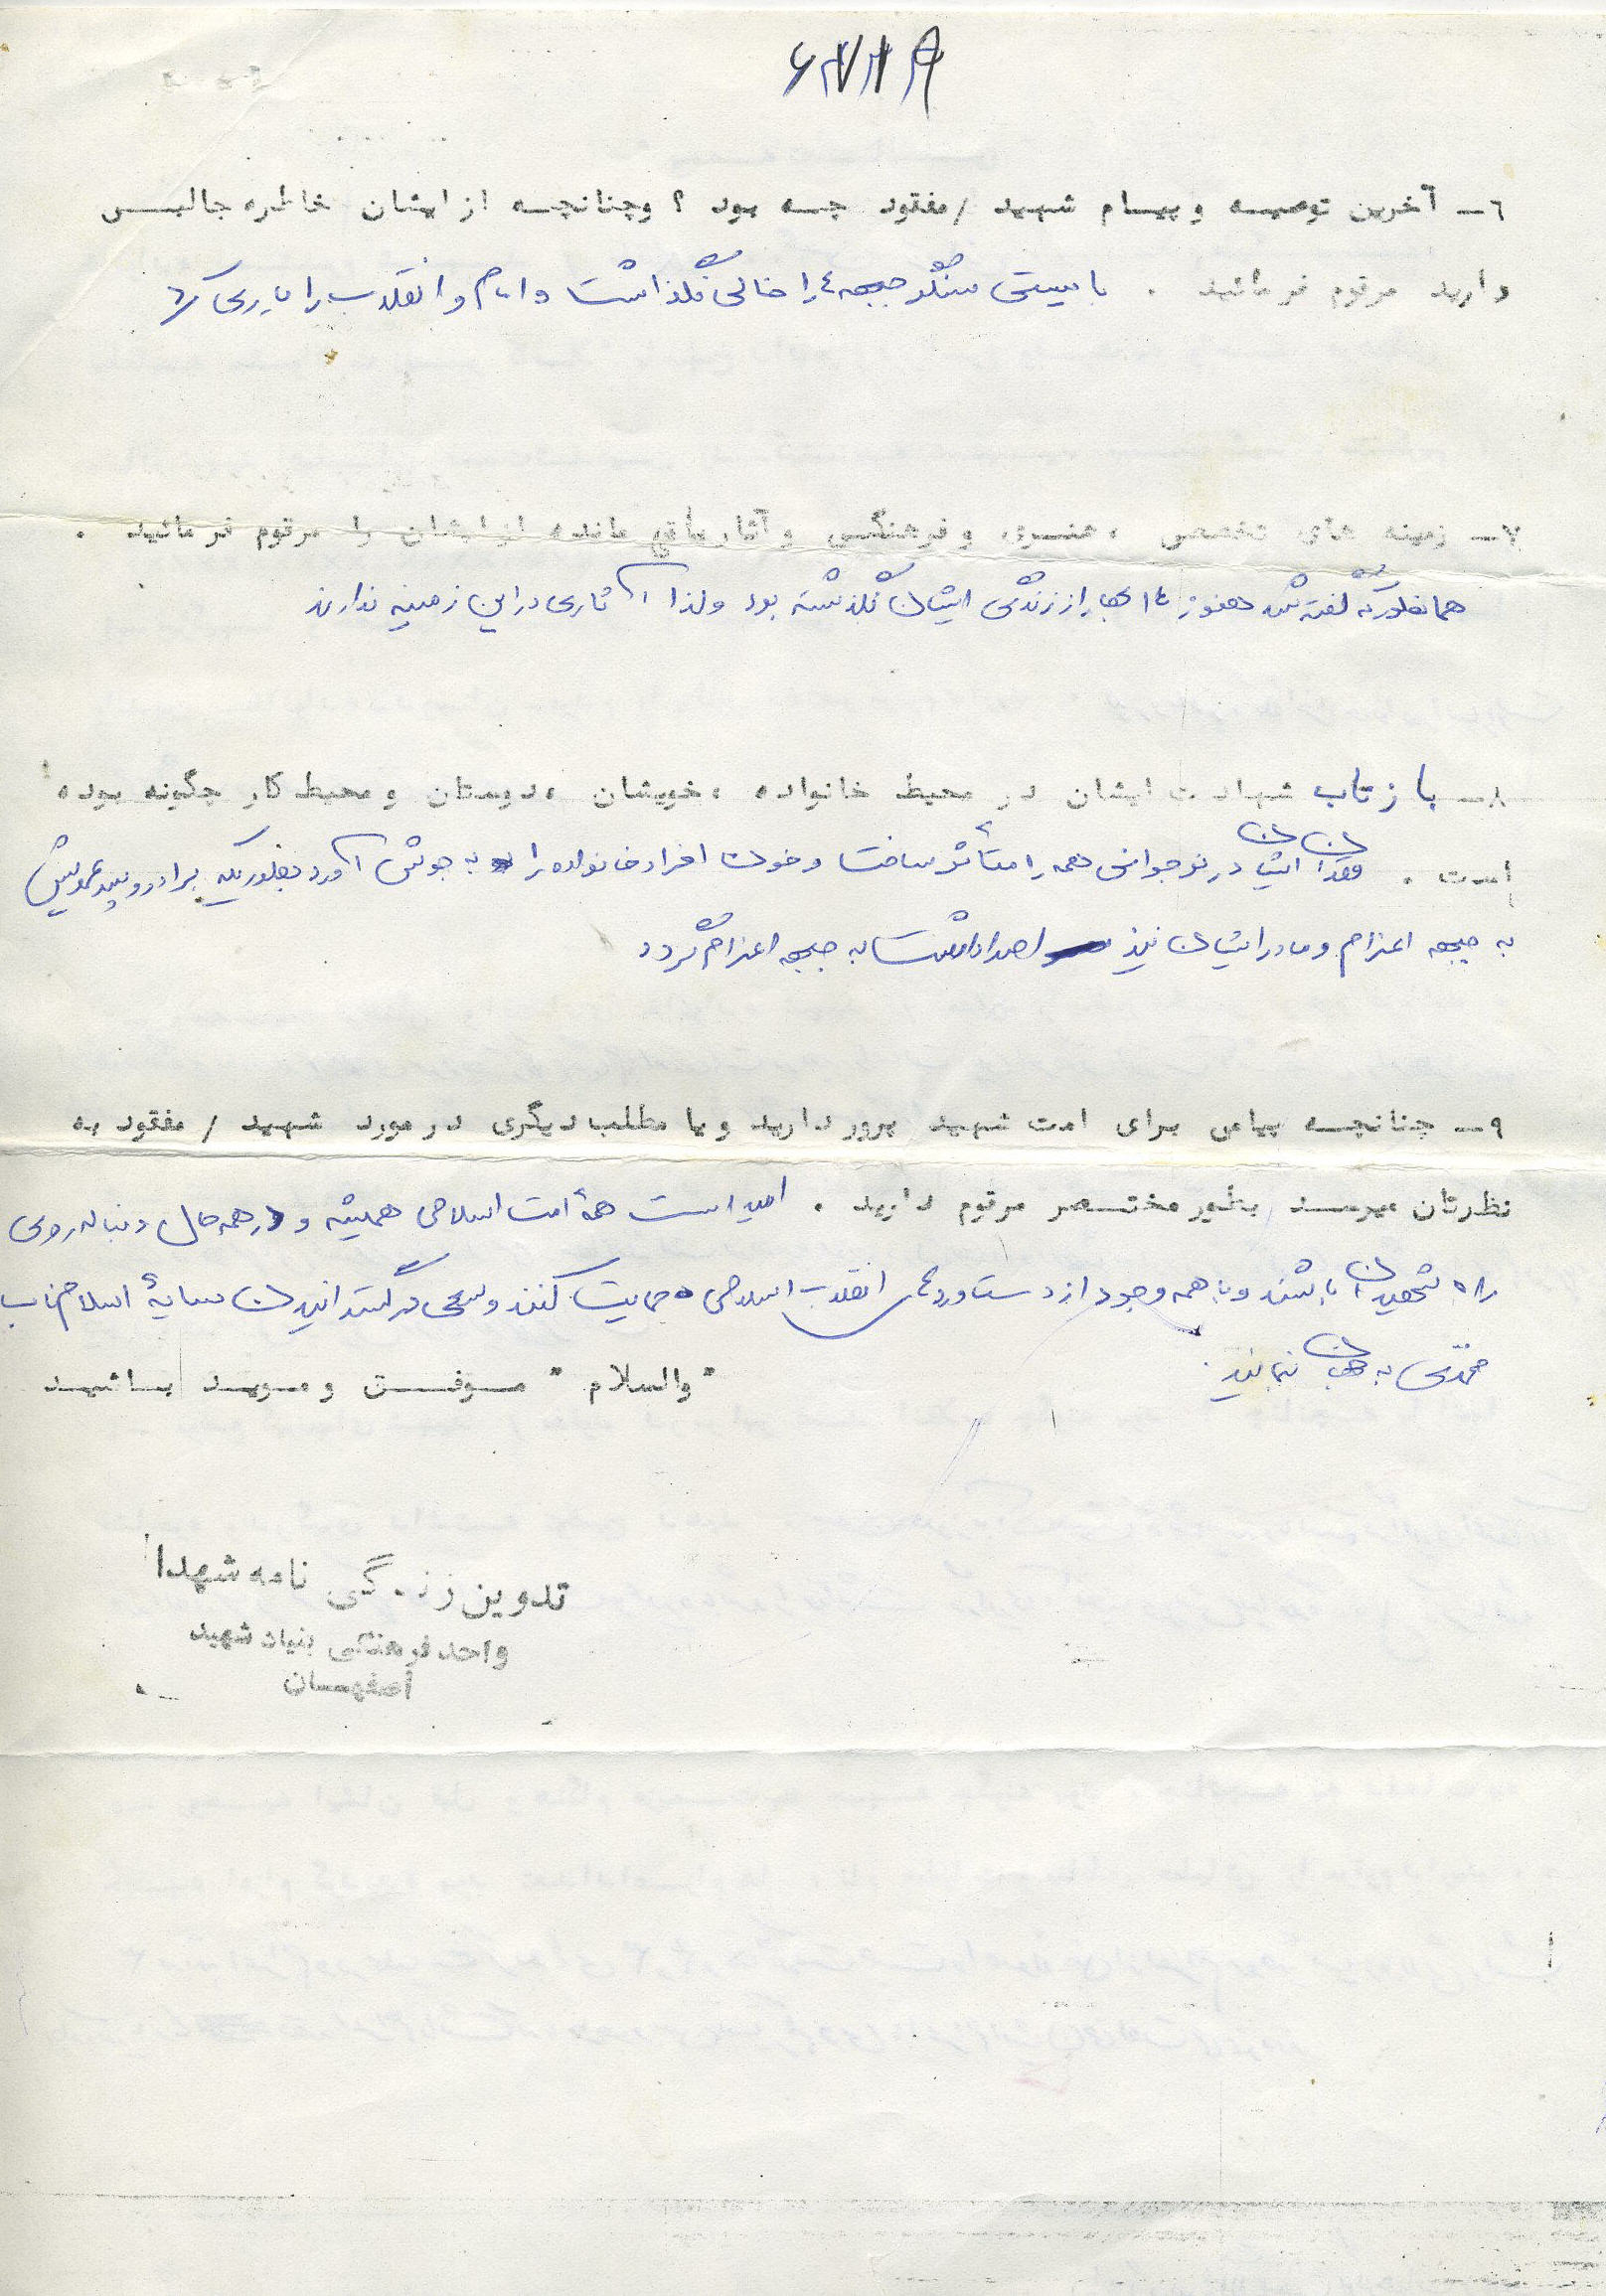 ٦ــ آخرین توصیه و پیام شهید /مفقود چه بود ؟ و چنانچه از ایشان خاطره جالبی
دارید مرقوم فرمائید . بایستی سنگر جبهه ها را خالی نگذاشت و امام و انقلاب را یاری کرد
٧ــ زمینه های تخصصی ، هنری و فرهنگی و آثار باقی مانده از ایشان را مرقوم فرمائید .
همانطور که گفته شد هنوز ١٤ بهار از زندگی ایشان نگذشته بود ولذا آثاری در این زمینه ندارند
٨ــ بازتاب شهادت ایشان در محیط خانواده ، خویشان ، دوستان و محیط کار چگونه بوده
است . فقدان ایشان در نوجوانی همه را متأثر ساخت و خون افراد خانواده را به جوش آورد بطوریکه برادر و پسر عمویش
به جبهه اعزام و مادر ایشان نیز اصرار داشت به جبهه اعزام گردد
٩ــ چنانچه پیامی برای امت شهید پرور دارید و یا مطلب دیگری در مورد شهید / مفقود به
نظرتان میرسد بطور مختصر مرقوم دارید . امید است همۀ امت اسلامی همیشه و در همه حال دنباله روی
راه شهیدان باشند و با همه وجود از دستاوردهای انقلاب اسلامی حمایت کنند و سعی در گستراندن سایۀ اسلام ناب
محمدی به جهان نمایند.
" والسلام " موفق و موید باشید
تدوین زندگی نامه شهدا
واحد فرهنگی بنیاد شهید
اصفهان